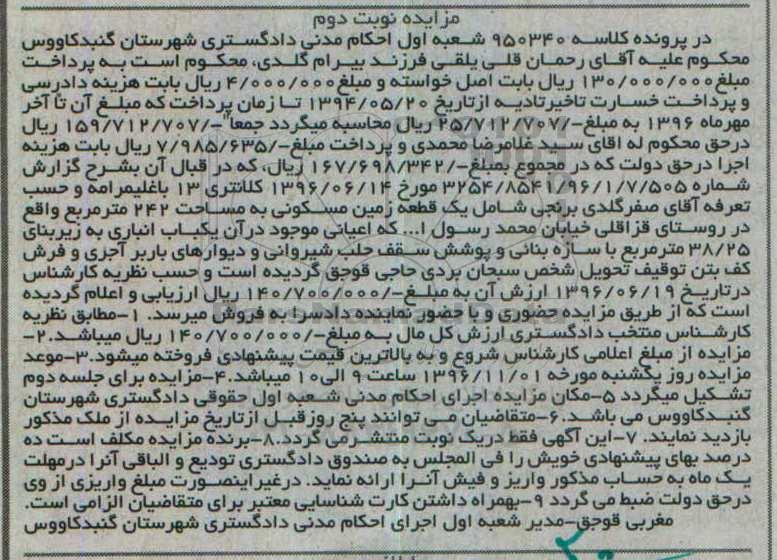 مزایده نوبت دوم
در پرونده کلاسه ۹۵۰۳۴۰ شعبه اول احکام مدنی دادگستری شهرستان گنبدکاووس
محکوم علیه آقای رحمان قلی یلقی فرزند بیرام گلدی، محکوم است به پرداخت
مبلغ۱۳۰/۰۰۰/۰۰۰ ریال بابت اصل خواسته و مبلغ۴/۰۰۰/۰۰۰ ریال بابت هزینه دادرسی
و پرداخت خسارت تاخیرتادیه ازتاریخ ۱۳۹۴/۰۵/۲۰ تا زمان پرداخت که مبلغ آن تا آخر
مهرماه ۱۳۹۶ به مبلغ-/۲۵/۷۱۲/۷۰۷ ریال محاسبه میگردد جمعاً-/۱۵۹/۷۱۲/۷۰۷ ریال
درحق محکوم له اقای سید غلامرضا محمدی و پرداخت مبلغ-/۷/۹۸۵/۶۳۵ ریال بابت هزینه
اجرا درحق دولت که در مجموع بمبلغ-/۱۶۷/۶۹۸/۳۴۲ ریال، که در قبال آن بشرح گزارش
شماره ۳۲۵۴/۸۵۴۱/۹۶/۱/۷/۵۰۵ مورخ ۱۳۹۶/۰۶/۱۴ کلانتری ۱۳ باغلیمرامه و حسب
تعرفه آقای صفرگلدی برنجی شامل یک قطعه زمین مسکونی به مساحت ۲۴۲ مترمربع واقع
در روستای قزاقلی خیابان محمد رسول ا... که اعیانی موجود درآن یکباب انباری به زیربنای
۳۸/۲۵ مترمربع با سازه بنائی و پوشش سقف حلب شیروانی و دیوارهای باربر آجری و فرش
کف بتن توقیف تحویل شخص سبحان بردی حاجی قوجق گردیده است و حسب نظریه کارشناس
درتاریخ ۱۳۹۶/۰۶/۱۹ ارزش آن به مبلغ-/۱۴۰/۷۰۰/۰۰۰ ریال ارزیابی و اعلام گردیده
است که از طریق مزایده حضوری و با حضور نماینده دادسرا به فروش میرسد. ۱-مطابق نظریه
کارشناس منتخب دادگستری ارزش کل مال به مبلغ-/۱۴۰/۷۰۰/۰۰۰ ریال میباشد.۲-
مزایده از مبلغ اعلامی کارشناس شروع و به بالاترین قیمت پیشنهادی فروخته میشود.۳-موعد
مزایده روز یکشنبه مورخه ۱۳۹۶/۱۱/۰۱ ساعت ۹ الی۱۰ میباشد.۴-مزایده برای جلسه دوم
تشکیل میگردد ۵-مکان مزایده اجرای احکام مدنی شعبه اول حقوقی دادگستری شهرستان
گنبدکاووس می باشد.۶-متقاضیان می توانند پنج روزقبل ازتاریخ مزایده از ملک مذکور
بازدید نمایند. ۷-این آگهی فقط دریک نوبت منتشرمی گردد.۸-برنده مزایده مکلف است ده
درصد بهای پیشنهادی خویش را فی المجلس به صندوق دادگستری تودیع و الباقی آنرا درمهلت
یک ماه به حساب مذکور واریز و فیش آنرا ارائه نماید. درغیراینصورت مبلغ واریزی از وی
درحق دولت ضبط می گردد ۹-بهمراه داشتن کارت شناسایی معتبر برای متقاضیان الزامی است.
مغربی قوجق-مدیر شعبه اول اجرای احکام مدنی دادگستری شهرستان گنبدکاووس